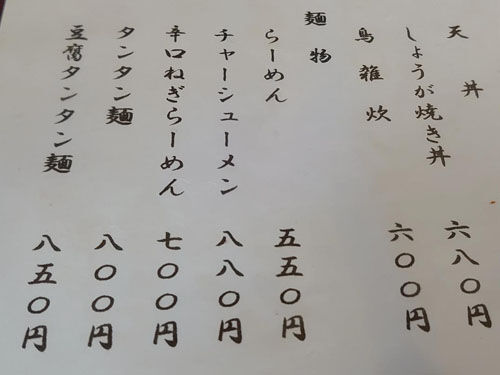 天丼 六八〇円
しょうが焼き丼 六〇〇円
鳥雑炊
麺物
らーめん 五五〇円
チャーシューメン 八八〇円
辛口ねぎらーめん 七〇〇円
タンタン麺 八〇〇円
豆腐タンタン麺 八五〇円